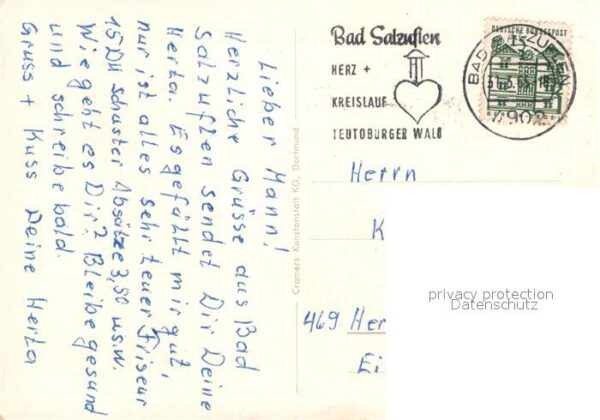 Lieber Mann!
Herzliche Grüsse aus Bad
Salzuflen sendet Dir Deine
Herta. Es gefällt mir gut,
nur ist alles sehr teuer Friseur
15 DM Schuster Absätze 3,50 u.s.w.
Wie geht es Dir? Bleibe gesund
und schreibe bald.
Gruss + Kuss Deine Herta
Cramers Kunstanstalt KG, Dortmund
Bad Salzuflen
HERZ +
KREISLAUF
TEUTOBURGER WALD
DEUTSCHE BUNDESPOST
15
BAD SALZUFLEN
4902
Herrn
K
469 Her
Ei
privacy protection
Datenschutz